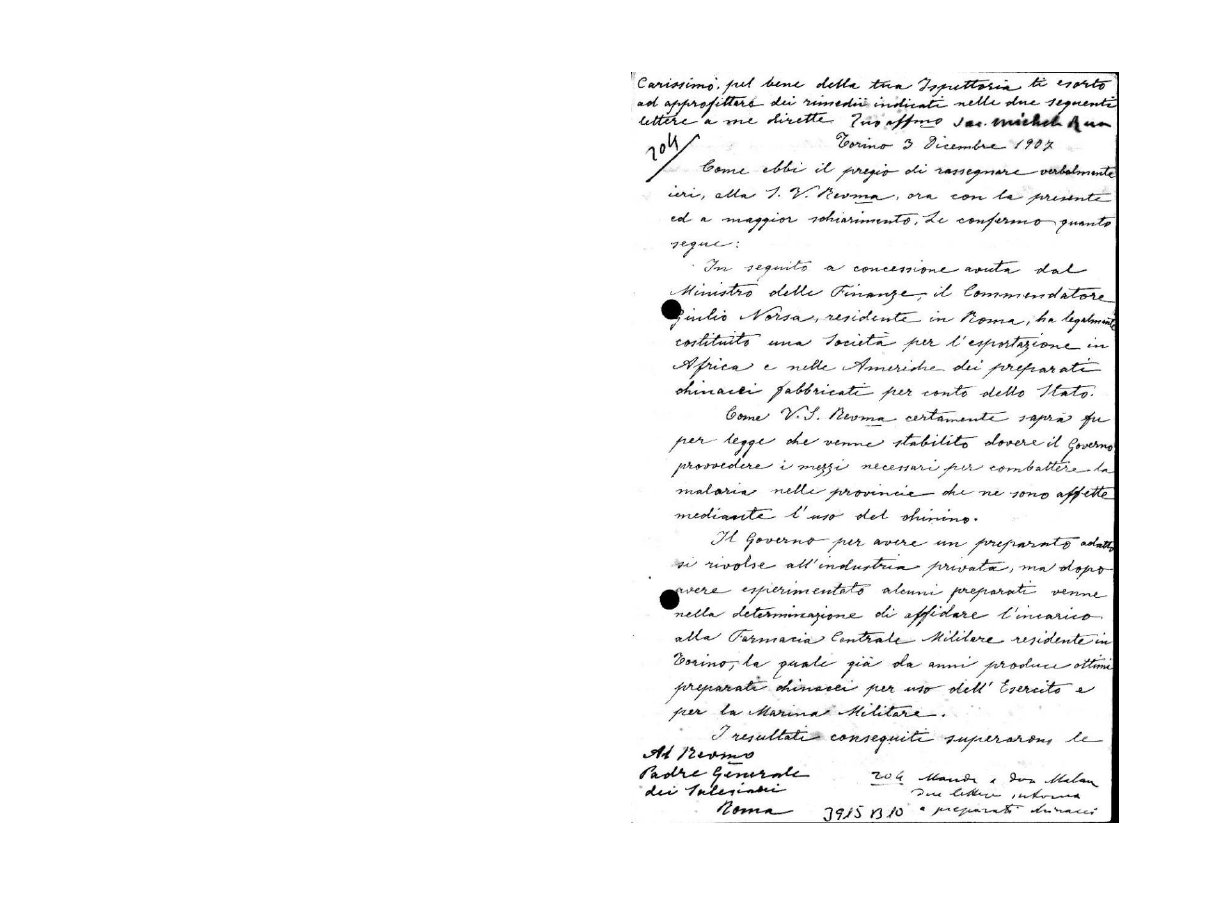 Carissimo, pel bene della tua Ispettoria ti esorto
ad approfittare dei rimedii indicati nelle due seguenti
lettere a me dirette Tuo affmo Sac. Michele Rua
204
Torino 3 Dicembre 1907
Come ebbi il pregio di rassegnare verbalmente
ieri, alla S. V. Revma, ora con la presente
ed a maggior schiarimento, Le confermo quanto
segue:
In seguito a concessione avuta dal
Ministro delle Finanze, il Commendatore
Giulio Norsa, residente in Roma, ha legalmente
costituito una Società per l'esportazione in
Africa e nelle Americhe dei preparati
chinacei fabbricati per conto dello Stato.
Come V. S. Revma certamente saprà fu
per legge che venne stabilito dovere il Governo
provvedere i mezzi necessari per combattere la
malaria nelle provincie che ne sono affette
mediante l'uso del chinino.
Il Governo per avere un preparato adatto
si rivolse all'industria privata, ma dopo
avere esperimentato alcuni preparati venne
nella determinazione di affidare l'incarico
alla Farmacia Centrale Militare residente in
Torino, la quale già da anni produce ottimi
preparati chinacei per uso dell'Esercito e
per la Marina Militare.
I resultati conseguiti superarono le
Al Revmo
Padre Generale
dei Salesiani
Roma
204 Manda a Don Malan
due lettere intorno
a preparati chinacei
3915 B 10